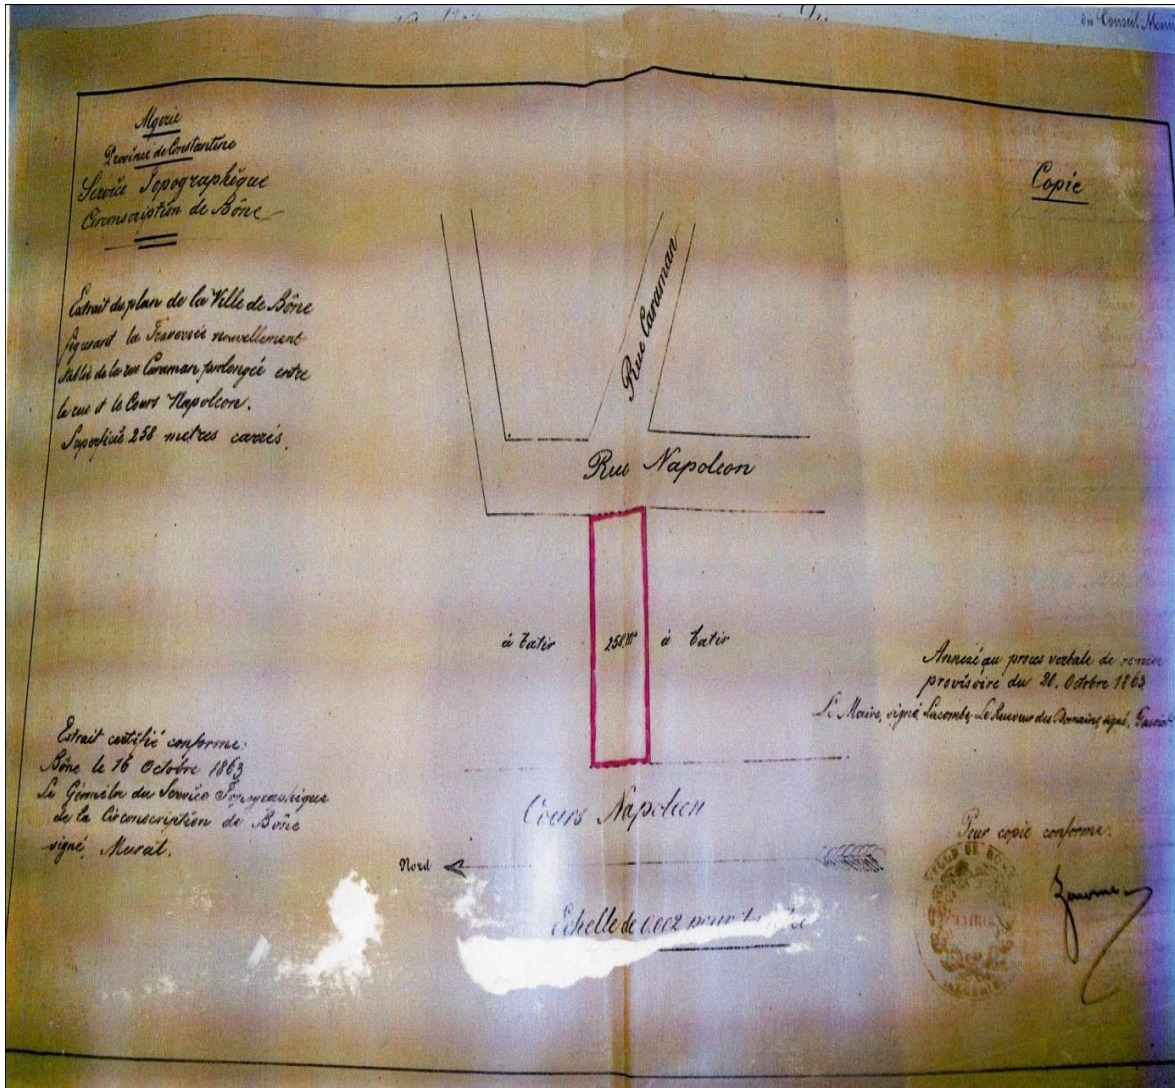 du Conseil Muni
Algérie
Province de Constantine
Service Topographique
Circonscription de Bône
Copie
Extrait du plan de la Ville de Bône
figurant la Traversée nouvellement
établie de la rue Caraman prolongée entre
la rue et le Cours Napoléon.
Superficie 258 metres carrés.
Rue Caraman
Rue Napoleon
à batir
258
à batir
Annexé au proces verbale de remise
provisoire du 20. Octobre 1863
Le Maire, signé, Lacombe, Le Receveur des Domaines signé,
Extrait certifié conforme:
Bône le 16 Octobre 1863
Le Géomètre du Service Topographique
de la Circonscription de Bône
signé, Murat.
Cours Napoleon
Nord
Echelle de 0,002 pour
Pour copie conforme:
VILLE DE BÔNE
MAIRIE
ALGERIE